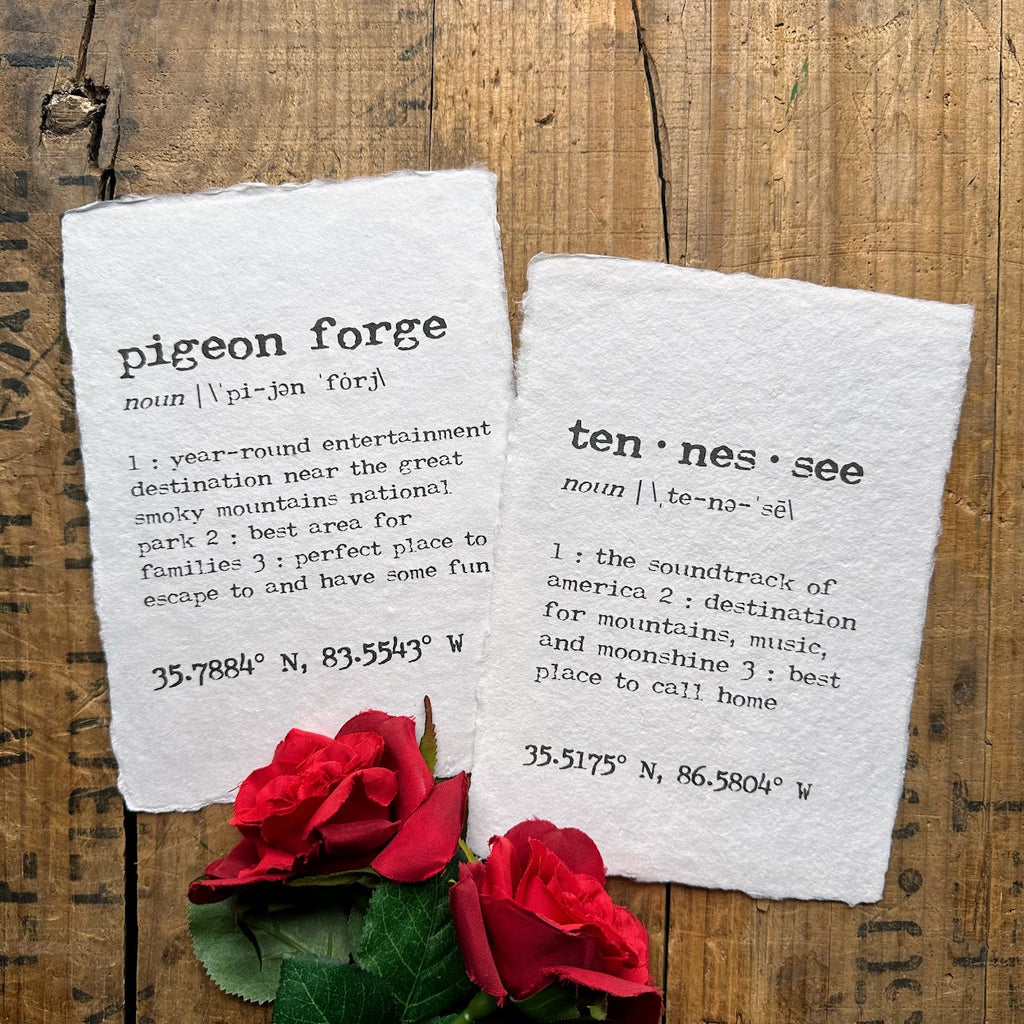 pigeon forge
noun | \ˈpi-jən ˈfȯrj\
1 : year-round entertainment
destination near the great
smoky mountains national
park 2 : best area for
families 3 : perfect place to
escape to and have some fun
35.7884° N, 83.5543° W
ten · nes · see
noun | \ˌte-nə-ˈsē\
1 : the soundtrack of
america 2 : destination
for mountains, music,
and moonshine 3 : best
place to call home
35.5175° N, 86.5804° W